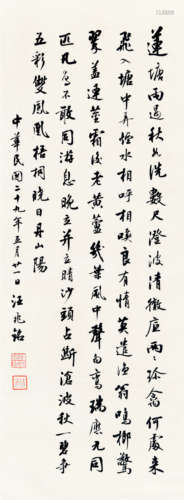 蓮塘雨過秋如洗數尺澄波清徹底兩兩珍禽何處來
飛入塘中弄恬水相呼相喚良有情莫遣漁翁鳴榔驚
翠蓋連莖霜後老黃蘆幾葉風中聲白鳶瑞應元同
匹凡鳥不敢同游息晚立並立晴沙頭占斷滄波秋一碧爭
五彩雙鳳凰梧桐曉日丹山陽
中華民國二十九年五月廿一日 汪兆銘